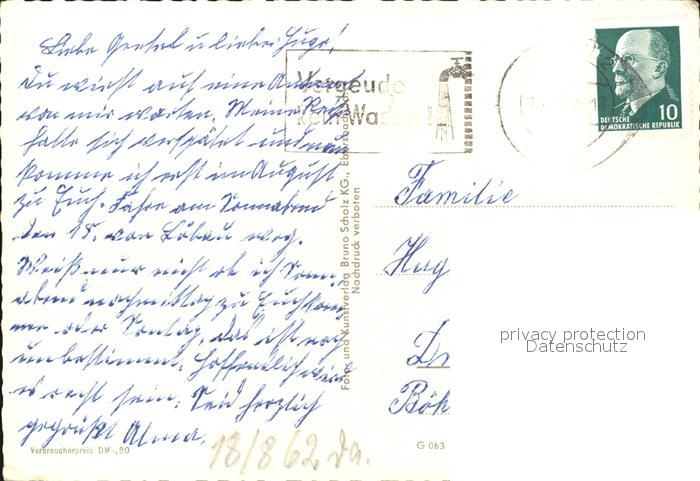 Liebe Gretel u. lieber Hugo!
Du wirst auf eine Antwort
von mir warten. Meine Reise
hatte sich verspätet und nun
komme ich erst im August
zu Euch. Fahre am Sonnabend
den 18. von Löbau weg.
Weiß nur nicht ob ich Sonn-
abend nachmittag zu Euch kom-
me oder Sonntag, das ist noch
unbestimmt. Hoffentlich wird
es recht sein. Seid herzlich
gegrüßt Alma.
Verbraucherpreis DM -,20
18/8 62 da.
Vergeude
kein Wasser!
DEUTSCHE
DEMOKRATISCHE REPUBLIK
10
Foto- und Kunstverlag Bruno Scholz KG.,
Nachdruck verboten
Familie
Hug
Dr
Böh
G 063
privacy protection
Datenschutz